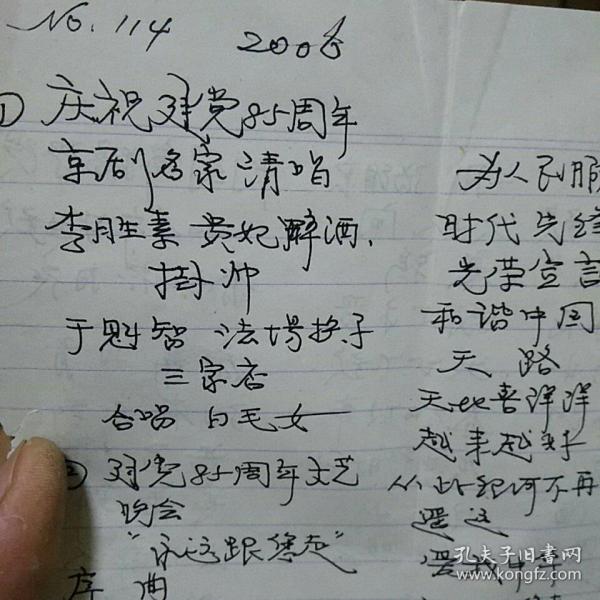 No. 114 2006
① 庆祝建党85周年
京剧名家清唱
李胜素 贵妃醉酒、
挂帅
于魁智 法场换子
三家店
合唱 白毛女
② 建党85周年文艺
晚会
"永远跟您走"
序曲
为人民服
时代先锋
光荣宣言
和谐中国
天路
天地喜洋洋
越来越好
从此银河不再
遥远
孔夫子旧书网
www.kongfz.com